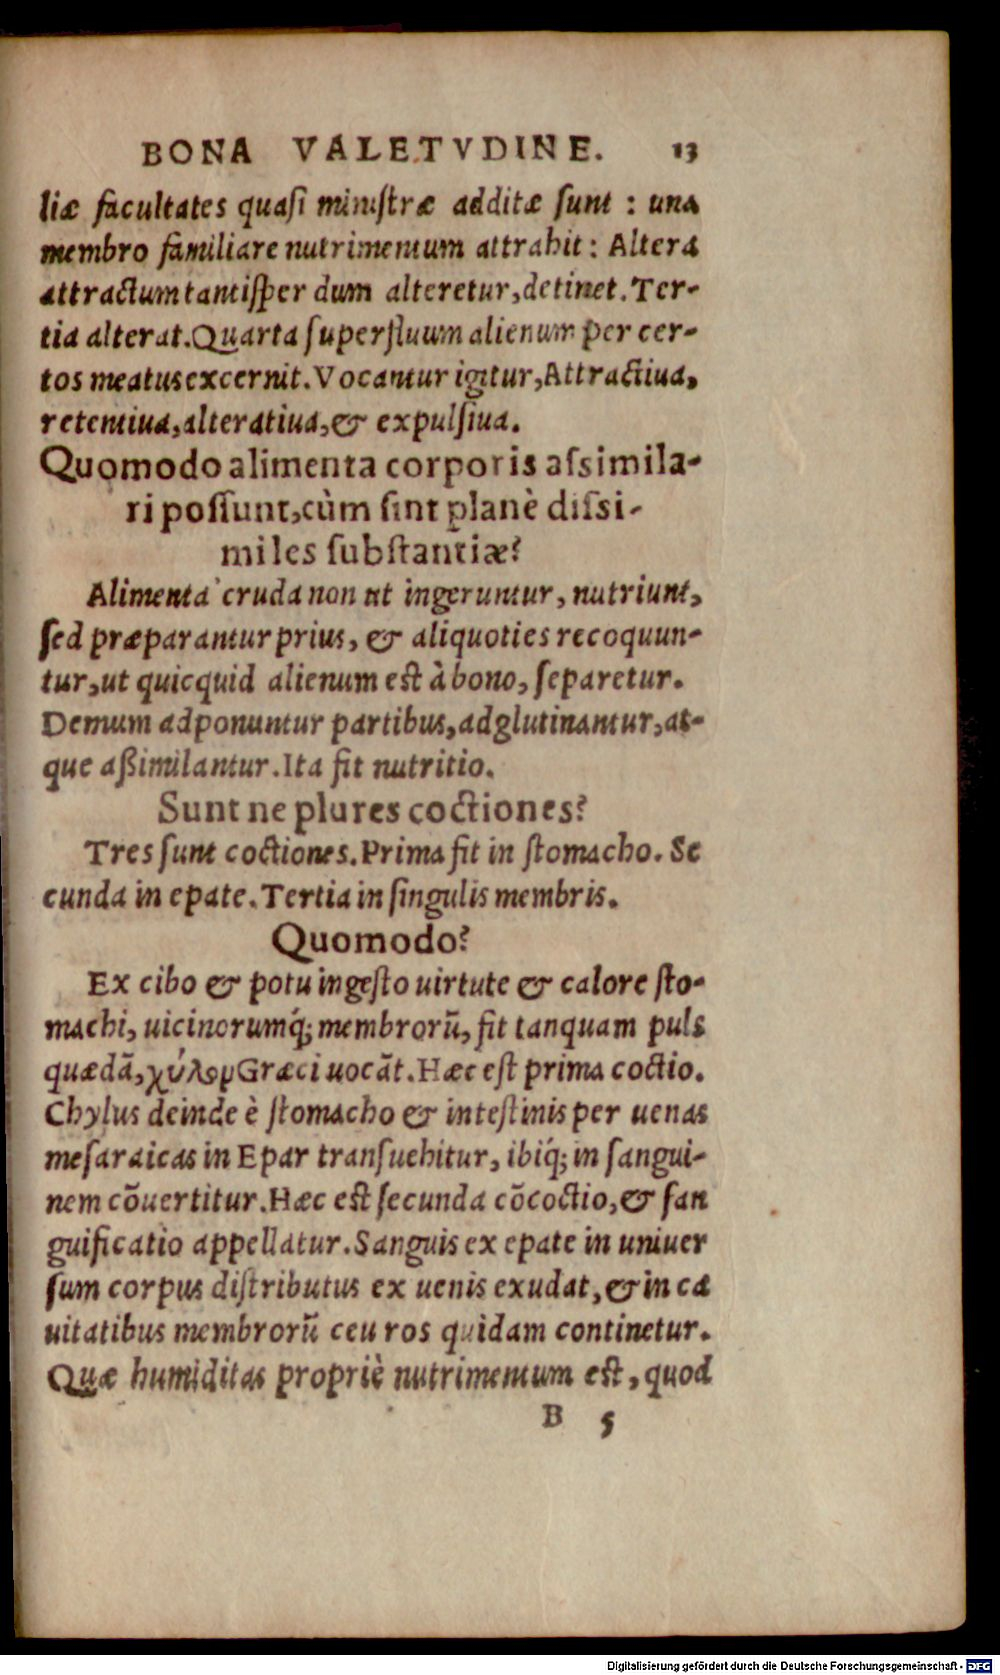 BONA VALETVDINE. 13
liæ facultates quasi ministræ additæ sunt : una
membro familiare nutrimentum attrahit : Altera
attractum tantisper dum alteretur, detinet. Ter-
tia alterat. Quarta superfluum alienum per cer-
tos meatus excernit. Vocantur igitur, Attractiua,
retentiua, alteratiua, & expulsiua.
Quomodo alimenta corporis assimila-
ri possunt, cùm sint planè dissi-
miles substantiæ?
Alimenta cruda non ut ingeruntur, nutriunt,
sed præparantur prius, & aliquoties recoquun-
tur, ut quicquid alienum est à bono, separetur.
Demum adponuntur partibus, adglutinantur, at-
que aßimilantur. Ita fit nutritio.
Sunt ne plures coctiones?
Tres sunt coctiones. Prima fit in stomacho. Se
cunda in epate. Tertia in singulis membris.
Quomodo?
Ex cibo & potu ingesto uirtute & calore sto-
machi, uicinorumq́; membrorũ, fit tanquam puls
quædã, χύλον Græci uocãt. Hæc est prima coctio.
Chylus deinde è stomacho & intestinis per uenas
mesaraicas in Epar transuehitur, ibiq́; in sangui-
nem cõuertitur. Hæc est secunda cõcoctio, & san
guificatio appellatur. Sanguis ex epate in uniuer
sum corpus distributus ex uenis exudat, & in ca
uitatibus membrorũ ceu ros quidam continetur.
Quæ humiditas propriè nutrimentum est, quod
B 5
Digitalisierung gefördert durch die Deutsche Forschungsgemeinschaft - DFG